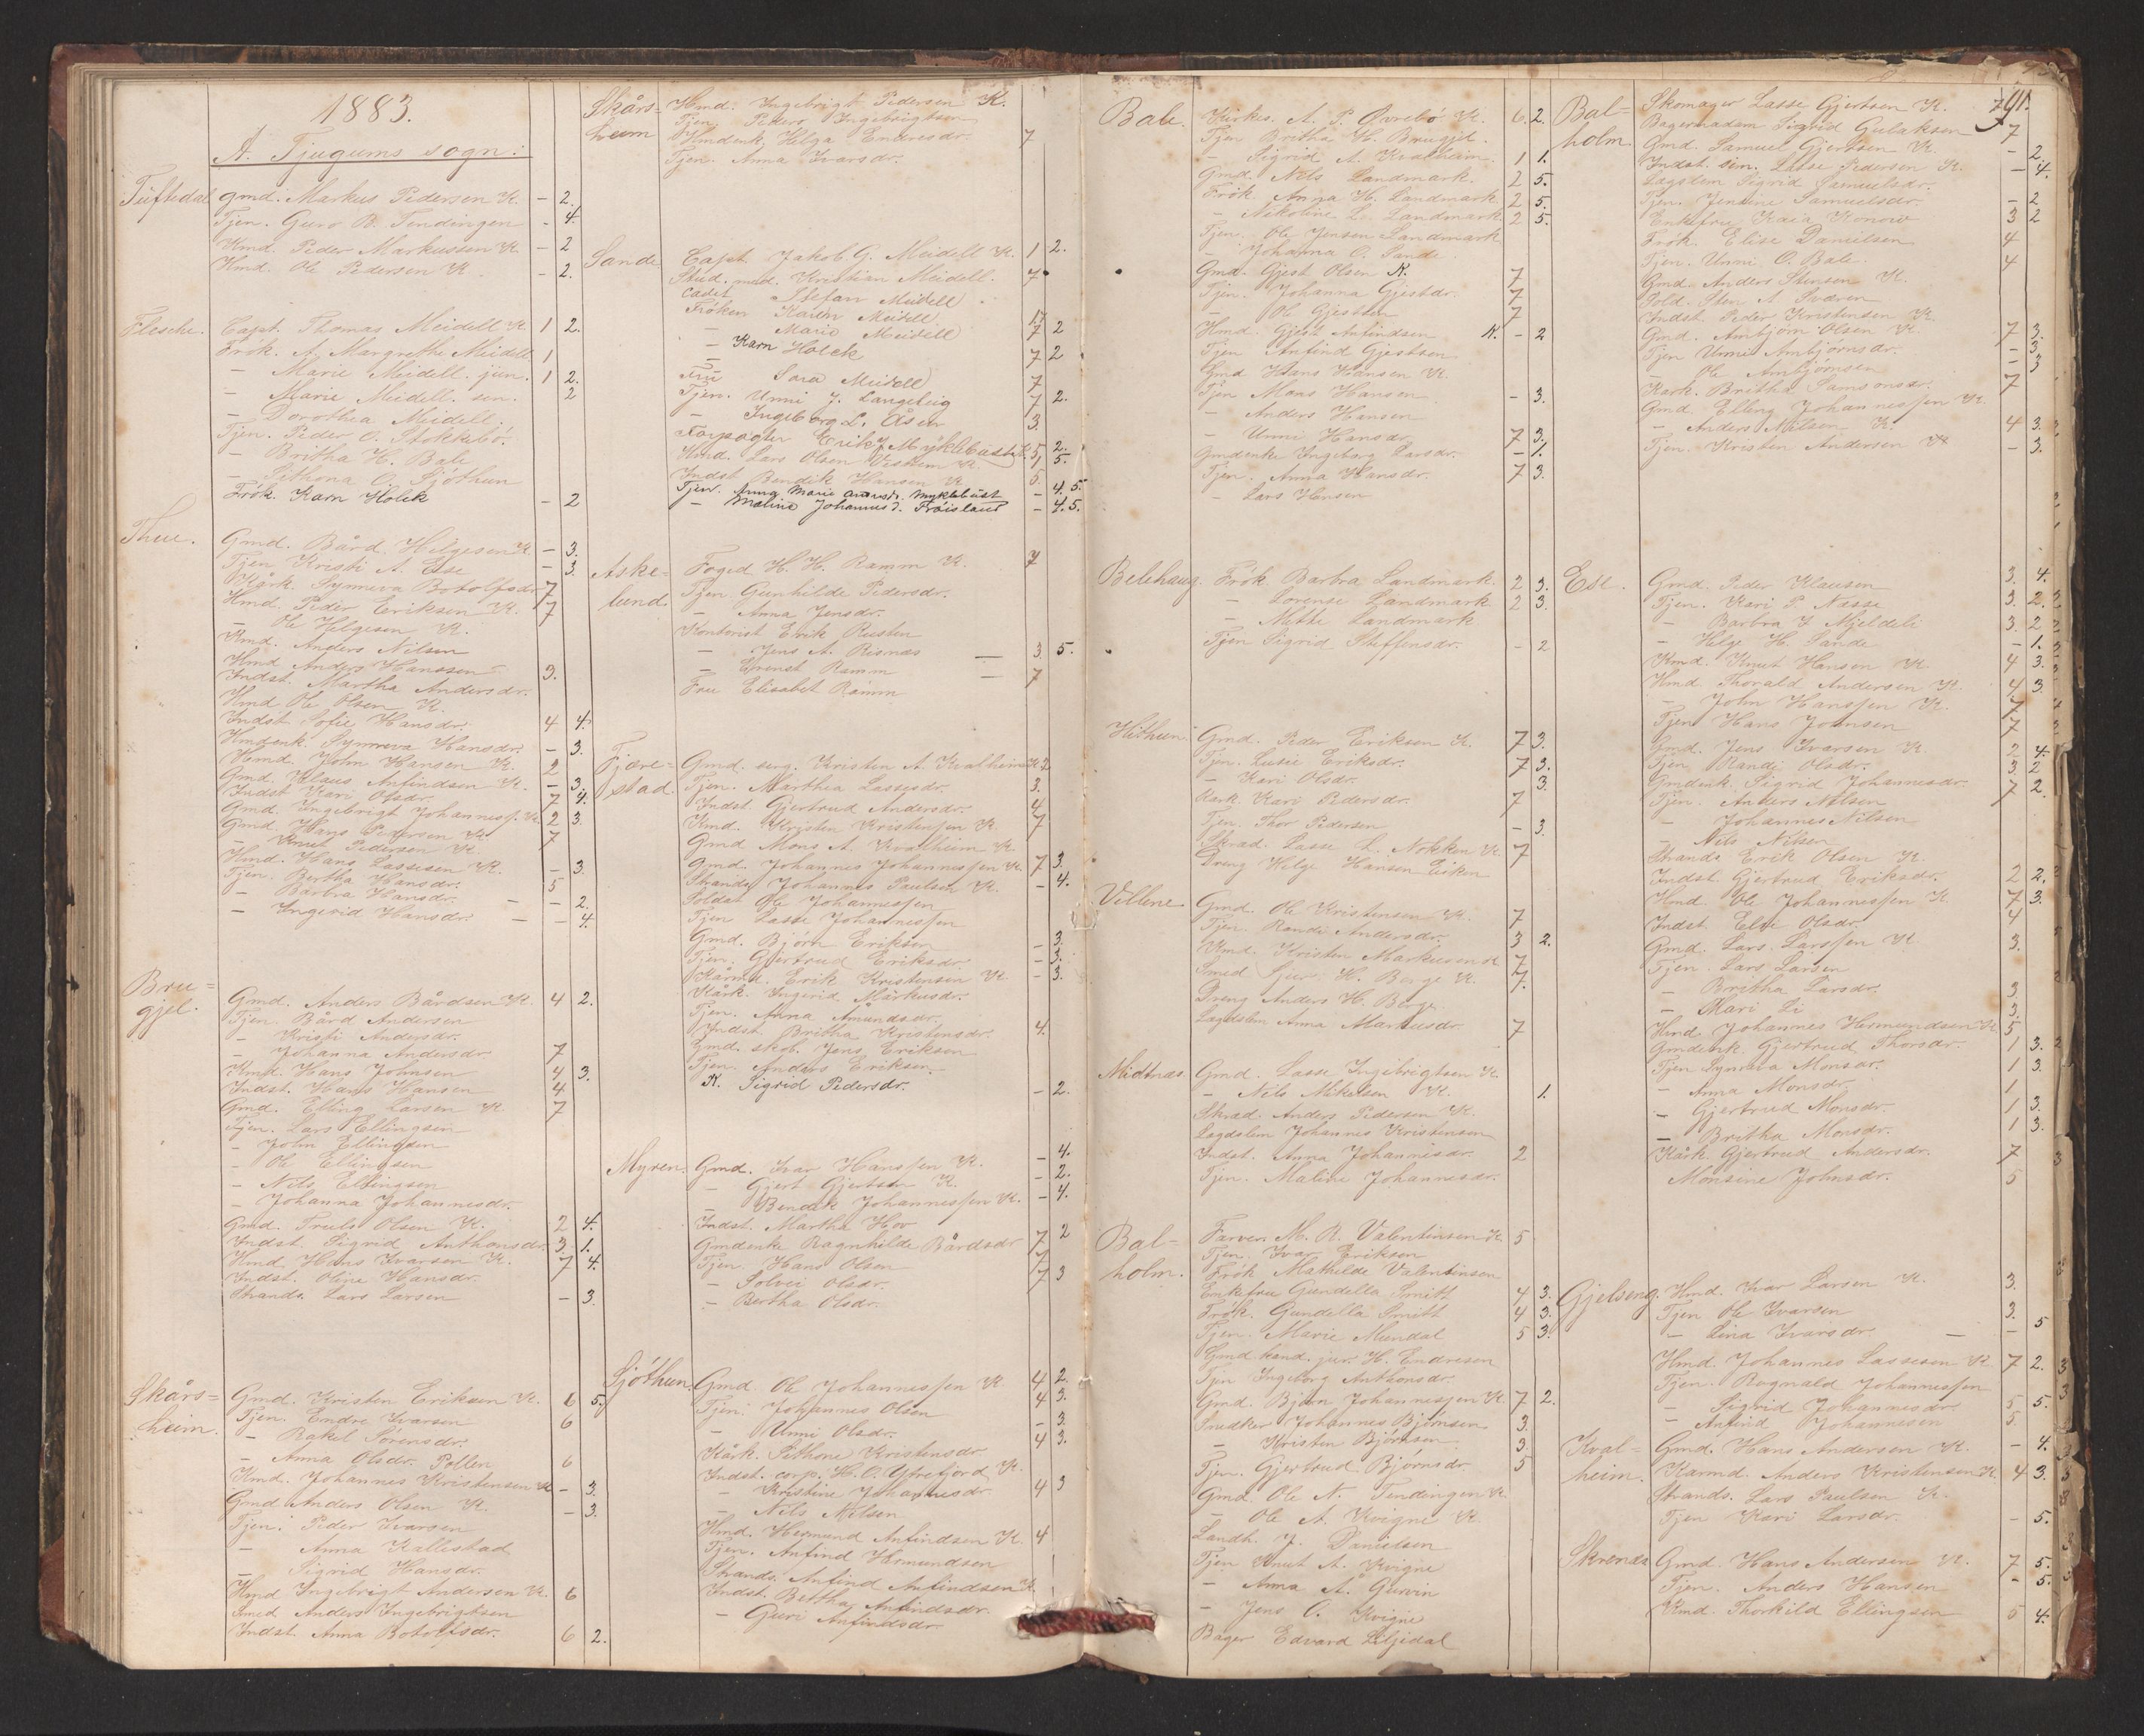 1883.
A. Tjugums sogn:
Tuftedal Gmd. Markus Pedersen K. - 2.
Tjen. Guro B. Tendingen - 4.
Kmd. Peder Markussen K. - 2
Hmd. Ole Pedersen K. - 2.
Flesche. Capt. Thomas Meidell K 1 2.
Frøk. A. Margrethe Meidell 1
- Marie Meidell. jun. 1 2.
- Marie Meidell. sen. 2
- Dorothea Meidell.
Tjen. Peder O. Stokkebø.
- Britha H. Bale
- Sithona O. Sjøthun
Frøk. Karn Holck - 2
Thue. Gmd. Bård Helgesen K. - 3.
Tjen Kristi A. Ese - 3.
Kårk. Synneva Botolfsdr 7
Hmd. Peder Eriksen K. 7
- Ole Helgesen K.
Kmd. Anders Nilsen
Hmd Anders Hanssen 3.
Indst. Martha Andersdr.
Hmd Ole Olsen K.
Indst. Sofie Hansdr. 4 4.
Hmdenk. Synneva Hansdr. - 3.
Hmd. John Hansen K. 2
Gmd. Klaus Anfindsen K. - 3.
Indst Kari Olsdr. 7 4.
Gmd. Ingebrigt Johannes. K 2 3.
Gmd. Hans Pedersen K. 7
- Knut Pedersen K.
Hmd. Hans Lassesen K. - 3.
Tjen. Bertha Hansdr. 5
- Barbra Hansdr. - - 2.
- Ingerid Hansdr. - - 4.
Bru=
gjel. Gmd. Anders Bårdsen K. 4 2.
Tjen. Bård Andersen
- Kristi Andersdr.
- Johanna Andersdr. 7
Kmd. Hans Johnsen 4 3.
Indst. Hans Hansen 4
Gmd. Elling Larsen K. 7
Tjen. Lars Ellingsen
- John Ellingsen
- Ole Ellingsen
- Nils Ellingsen
- Johanna Johannesdr.
Gmd. Truls Olsen K. 2 4.
Indst. Sigrid Anthonsdr. 3. 1.
Hmd Hans Ivarsen K. 7 4.
Indst. Oline Hansdr.
Strands. Lars Larsen - 3.
Skårs=
heim. Gmd. Kristen Eriksen K. 6 5.
Tjen. Endre Ivarsen 6
- Rakel Sørensdr.
- Anna Olsdr. Pollen 6
Kmd. Johannes Kristensen K - 3.
Gmd Anders Olsen K. - 3.
Tjen. Peder Ivarsen
- Anna Kallestad
- Sigrid Hansdr.
Hmd Ingebrigt Andersen K. 6
Smed Anders Ingebrigtsen
Indst. Anna Botolfsdr. 6 2.
Skårs=
heim Hmd. Ingebrigt Pedersen K.
Tjen. Peders Ingebrigtsen
Hmdenk. Helga Endresdr. 7
Tjen. Anna Ivarsdr.
Sande Capt. Jakob G. Meidell K. 1 2.
Stud. med. Kristian Meidell. 7
Cadet Stefan Meidell
Frøken Karen Meidell 1
- Marie Meidell 7 2
- Karn Holck 7 2
Fru Sara Meidell 7
Tjen. Unni J. Langeteig 7 2.
- Ingeborg L. Åsen 3.
Forpagter Erik J Myklebust K. 5 2.
Hmd. Lars Olsen Veshem K. 1 5.
Indst Bendik Hansen K 5.
Tjen. Anna Marie Myklebust - 4. 5.
- Maline Johannesd. Frøisland - 4. 5.
Aske=
lund. Foged H. H. Ramm K. 7
Tjen. Gunhilde Pedersdr.
- Anna Jensdr.
Kontorist Erik Rusten
- Jens A. Risnæs - 3. 5.
- Ernst Ramm - 7
Fru Elisabet Ramm
Fjære=
stad. Gmd. serg. Kristen A. Kvalheim K 2
Tjen. Marthea Lassesdr. 3.
Indst. Gjertrud Andersdr. 4
Kmd. Kristen Kristenssen K. 7
Gmd Mons A. Kvalheim K.
Gmd. Johannes Johannessen K. 7 3.
Strands. Johannes Paulsen K. - 4.
Soldat Ole Johannessen
Tjen Lasse Johannessen
Gmd. Bjørn Eriksen - 3.
Tjen. Gjertrud Eriksdr. - 3.
Kårmd. Erik Kristensen K. - 3.
Kårk. Ingerid Markusdr.
Tjen. Anna Åmundsdr.
Indst. Britha Kristensdr. 4.
Gmd. skob. Jens Eriksen
Tjen. Anders Eriksen
K. Sigrid Pedersdr. - 2.
Myren. Gmd. Ivar Hanssen K. - 4.
- Gjert Gjertsen K. - 2.
- Bendik Johannessen K. - 4.
Indst. Martha Hov 2
Gmdenke Ragnhilde Bårdsdr 7
Tjen. Hans Olsen 7
- Solvei Olsdr. 7 3
- Bertha Olsdr.
Sjøthun. Gmd. Ole Johannessen K. 4 2.
Tjen. Johannes Olsen 4 3.
- Unni Olsdr. - 3.
Kårk. Sithone Kristensdr 4 3.
Indst. corp. H. O. Ytrefjord K.
- Kristine Johannesdr. 4 3
- Nils Nilsen
Hmd. Hermund Anfindsen K. 4
Tjen. Anfind Hermundsen
Strands. Anfind Anfindsen K.
Indst. Britha Anfindsdr.
- Guri Anfindsdr.
Bale. Kirkes. A. P. Øvrebø K. 6. 2.
Tjen Britha H. Brugjel.
- Sigrid A. Kvalheim. 1 1.
Gmd. Nils Landmark. 2 5.
Frøk. Anna H. Landmark 2 5.
- Nikoline L. Landmark 2 5.
Tjen. Ole Jensen Landmark
- Johanna O. Sande
Gmd. Gjest Olsen K. 7
Tjen. Johanna Gjestdr. 7
- Ole Gjestsen 7
Hmd. Gjest Anfindsen K. - 2
Tjen Anfind Gjestsen
Gmd Hans Hansen K.
Tjen Mons Hansen - 3.
- Anders Hansen
- Unni Hansdr. 7 3.
Gmdenke Ingeborg Larsdr. - 1.
Tjen. Anna Hansdr. 7 3.
- Lars Hansen
Belehaug. Frøk. Barbra Landmark. 2 3.
- Lorense Landmark 2 3.
- Mette Landmark
Tjen Sigrid Steffensdr. - 2
Hethun. Gmd. Peder Eriksen K. 7 3.
Tjen. Lusie Eriksdr. 7 3.
- Kari Olsdr. 3.
Kark. Kari Pedersdr. 7
Tjen. Thor Pedersen - 3.
Skræd. Lasse L. Nokken K. 7
Dreng Helge Hansen Eiken
Villene. Gmd. Ole Kristensen K. 7
Tjen. Randi Andersdr. 3 2.
Kmd. Kristen Markussen K 7
Smed Sjur H. Berge K. 7.
Dreng Anders H. Berge.
Lægdslem Anna Markusdr. 7
Midtnæs. Gmd. Lasse Ingebrigtsen K.
- Nils Mikelsen K. 1.
Skræd. Anders Pedersen K.
Lægdslem Johannes Kristensen
Indst. Anna Johannesdr. 2
Tjen. Maline Johannesdr.
Bal=
holm. Farver. M. R. Valentinsen K 5
Tjen. Ivar Eriksen
Frøk Mathilde Valentinsen
Enkefru Gundella Smitt 4 3.
Frøk. Gundella Smitt 4 3.
Tjen. Marie Mundal 5 3.
Gmd. kand. jur. H. Endresen
Tjen Ingeborg Anthonsdr.
Gmd. Bjørn Johannessen K. 7 2.
Snedker Johannes Bjørnsen 3.
- Kristen Bjørnsen 3.
Tjen. Gjertrud Bjørnsdr 5
Gmd. Ole N. Tendingen K.
- Ole A. Kvigne K
Landh. J. Danielsen
Tjen Knut A. Kvigne
- Anna A. Gurvin
- Jens O. Kvigne
Bager Edvard Liljedal
91.
Bal=
holm. Skomager Lasse Gjertsen K. 7
Bagermadam Sigrid Gulaksen 7
Gmd. Samuel Gjertsen K. - 2.
Indst. sem. Lasse Pedersen K. - 4.
Lægdslem Sigrid Samuelsdr.
Tjen. Jensine Samuelsdr - 2
Enkefru Kaia Konow 3 2
Frøk. Elise Danielsen 4
Tjen. Unni O. Bale. 4
Gmd Anders Stensen K.
Sold. Sten A. Sværen
Indst. Peder Kristensen K.
Gmd. Ambjørn Olsen K. 7 3.
Tjen Unni Ambjørnsdr. - 3.
- Ole Ambjørnsen - 3
Kark. Britha Samsonsdr. 7
Gmd Elling Johannessen K.
- Anders Nilsen K. 4 3.
Tjen. Kristen Andersen K - 3.
Ese. Gmd. Peder Klausen 3. 4.
Tjen. Kari P. Næsse 3. 2.
- Barbra I Mjeldeli 3. 2
- Helge H. Sande - 1.
Kmd. Knut Hansen K. 4 3.
Hmd. Thorald Andersen K. 4 3.
- John Hanssen K. 7
Tjen Hans Johnsen 7
Gmd. Jens Ivarsen K 2 4.
Tjen. Randi Olsdr. 3 2
Gmdenk. Sigrid Johannesdr. 7 2.
Tjen. Anders Nilsen
- Johannes Nilsen
- Nils Nilsen
Strands Erik Olsen K.
Indst. Gjertrud Eriksdr. 2 2.
Hmd. Ole Johannessen K 7 3.
Indst. Eli Olsdr. 4
Gmd. Lars Larssen K 3.
Tjen. Lars Larsen
- Britha Larsdr. 3
- Mari Li 3.
Hmd. Johannes Hermundsen K. 5
Gmdenk. Gjertrud Thorsdr. 1 3.
Tjen Synneva Monsdr. 1 3.
- Anna Monsdr. 1
- Gjertrud Monsdr. 1 3.
- Britha Monsdr. 1 3.
Kårk. Gjertrud Andersdr. 7
Monsine Johnsdr. 5
Gjelseng. Hmd. Ivar Larsen K. 3.
Tjen Ole Ivarsen 3.
- Lina Ivarsdr. - - 5
Hmd. Johannes Lassesen K 7 2.
Tjen. Rognald Johannessen
- Sigrid Johannesdr. 5 5.
- Anfind Johannesen 5
Kval=
heim. Gmd. Hans Andersen K. - 4.
Karmd. Anders Kristensen K. 4 3.
Strands. Lars Paulsen K.
Tjen Kari Larsdr. - 5.
Skrenæs Gmd. Hans Andersen K. 7 5.
Tjen. Anders Hansen - 5.
Kmd. Thorkild Ellingsen 5 4.